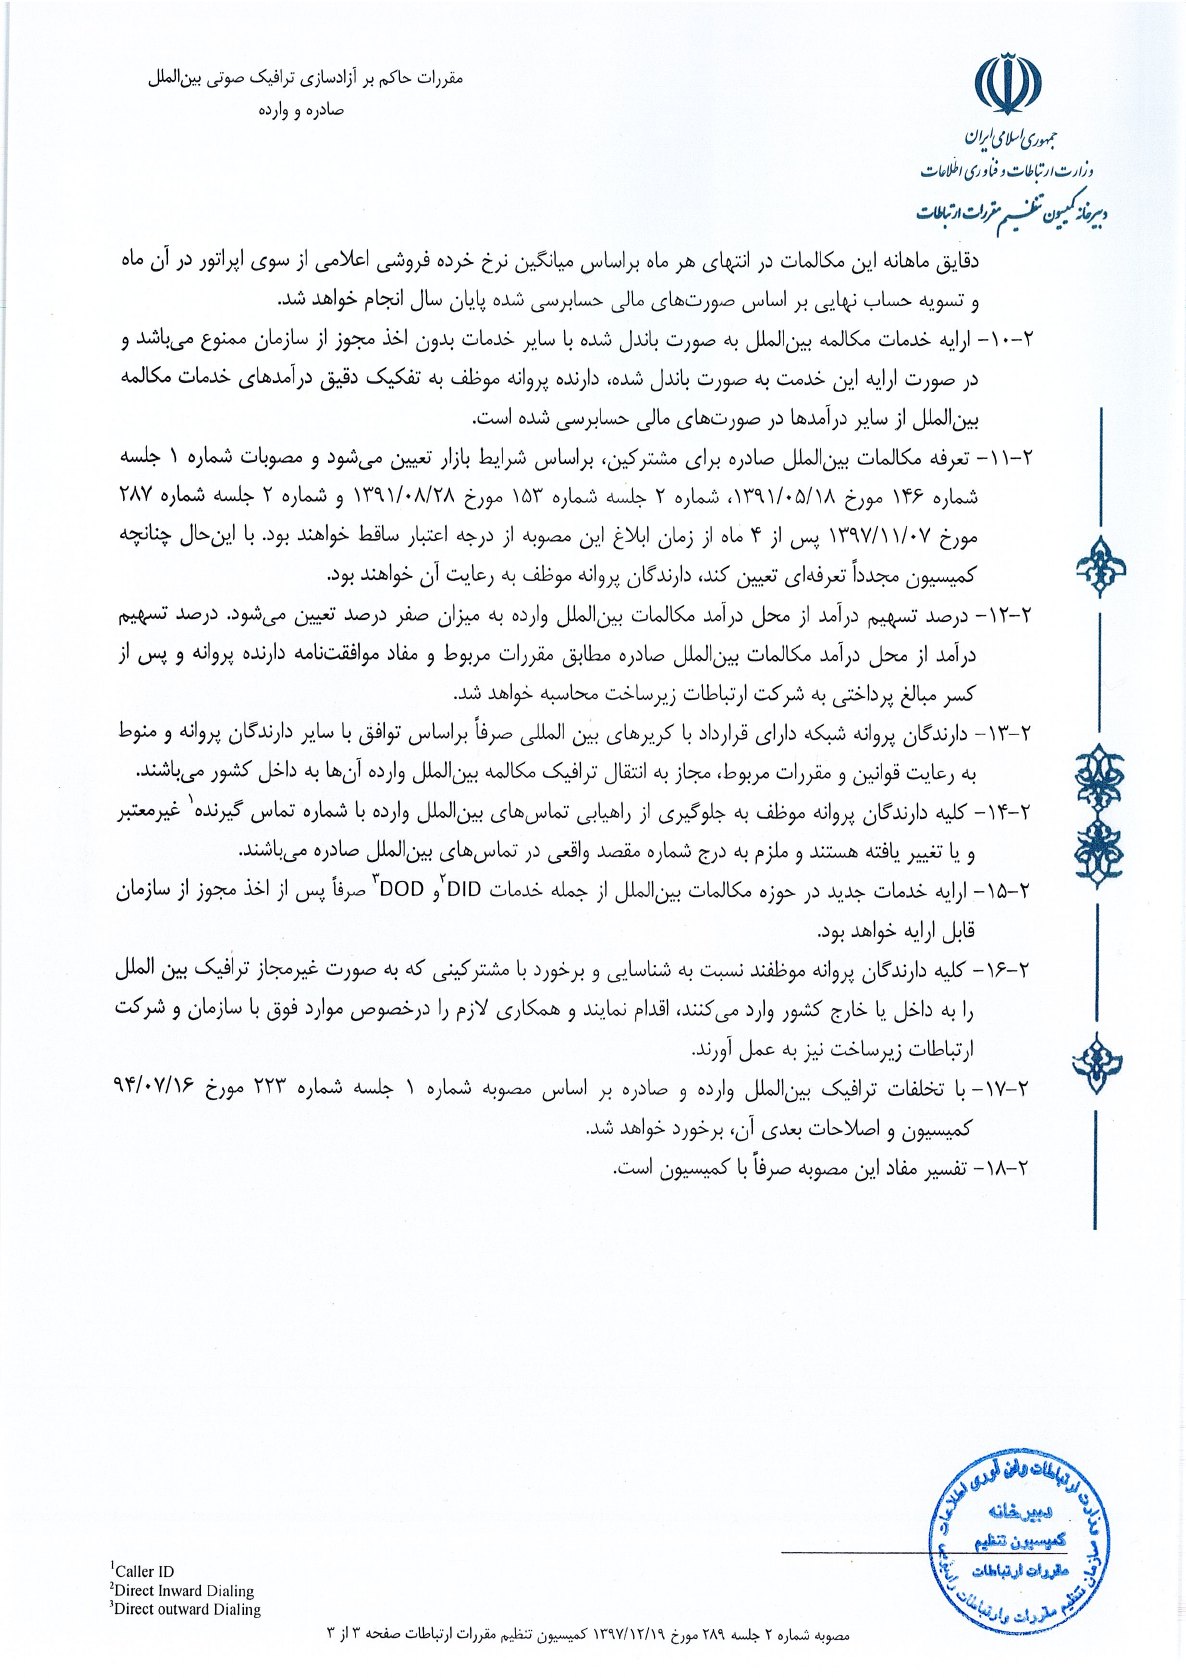 مقررات حاکم بر آزادسازی ترافیک صوتی بین‌الملل
صادره و وارده
جمهوری اسلامی ایران
وزارت ارتباطات و فناوری اطلاعات
دبیرخانه کمیسیون تنظیم مقررات ارتباطات
دقایق ماهانه این مکالمات در انتهای هر ماه براساس میانگین نرخ خرده فروشی اعلامی از سوی اپراتور در آن ماه
و تسویه حساب نهایی بر اساس صورت‌های مالی حسابرسی شده پایان سال انجام خواهد شد.
۲-۱۰- ارایه خدمات مکالمه بین‌الملل به صورت باندل شده با سایر خدمات بدون اخذ مجوز از سازمان ممنوع می‌باشد و
در صورت ارایه این خدمت به صورت باندل شده، دارنده پروانه موظف به تفکیک دقیق درآمدهای خدمات مکالمه
بین‌الملل از سایر درآمدها در صورت‌های مالی حسابرسی شده است.
۲-۱۱- تعرفه مکالمات بین‌الملل صادره برای مشترکین، براساس شرایط بازار تعیین می‌شود و مصوبات شماره ۱ جلسه
شماره ۱۴۶ مورخ ۱۳۹۱/۰۵/۱۸، شماره ۲ جلسه شماره ۱۵۳ مورخ ۱۳۹۱/۰۸/۲۸ و شماره ۲ جلسه شماره ۲۸۷
مورخ ۱۳۹۷/۱۱/۰۷ پس از ۴ ماه از زمان ابلاغ این مصوبه از درجه اعتبار ساقط خواهند بود. با این‌حال چنانچه
کمیسیون مجدداً تعرفه‌ای تعیین کند، دارندگان پروانه موظف به رعایت آن خواهند بود.
۲-۱۲- درصد تسهیم درآمد از محل درآمد مکالمات بین‌الملل وارده به میزان صفر درصد تعیین می‌شود. درصد تسهیم
درآمد از محل درآمد مکالمات بین‌الملل صادره مطابق مقررات مربوط و مفاد موافقت‌نامه دارنده پروانه و پس از
کسر مبالغ پرداختی به شرکت ارتباطات زیرساخت محاسبه خواهد شد.
۲-۱۳- دارندگان پروانه شبکه دارای قرارداد با کریرهای بین المللی صرفاً براساس توافق با سایر دارندگان پروانه و منوط
به رعایت قوانین و مقررات مربوط، مجاز به انتقال ترافیک مکالمه بین‌الملل وارده آن‌ها به داخل کشور می‌باشند.
۲-۱۴- کلیه دارندگان پروانه موظف به جلوگیری از راهیابی تماس‌های بین‌الملل وارده با شماره تماس گیرنده¹ غیرمعتبر
و یا تغییر یافته هستند و ملزم به درج شماره مقصد واقعی در تماس‌های بین‌الملل صادره می‌باشند.
۲-۱۵- ارایه خدمات جدید در حوزه مکالمات بین‌الملل از جمله خدمات DID² و DOD³ صرفاً پس از اخذ مجوز از سازمان
قابل ارایه خواهد بود.
۲-۱۶- کلیه دارندگان پروانه موظفند نسبت به شناسایی و برخورد با مشترکینی که به صورت غیرمجاز ترافیک بین الملل
را به داخل یا خارج کشور وارد می‌کنند، اقدام نمایند و همکاری لازم را درخصوص موارد فوق با سازمان و شرکت
ارتباطات زیرساخت نیز به عمل آورند.
۲-۱۷- با تخلفات ترافیک بین‌الملل وارده و صادره بر اساس مصوبه شماره ۱ جلسه شماره ۲۲۳ مورخ ۹۴/۰۷/۱۶
کمیسیون و اصلاحات بعدی آن، برخورد خواهد شد.
۲-۱۸- تفسیر مفاد این مصوبه صرفاً با کمیسیون است.
وزارت ارتباطات و فن آوری اطلاعات
سازمان تنظیم مقررات و ارتباطات رادیویی
دبیرخانه
کمیسیون تنظیم
مقررات ارتباطات
¹Caller ID
²Direct Inward Dialing
³Direct outward Dialing
مصوبه شماره ۲ جلسه ۲۸۹ مورخ ۱۳۹۷/۱۲/۱۹ کمیسیون تنظیم مقررات ارتباطات صفحه ۳ از ۳